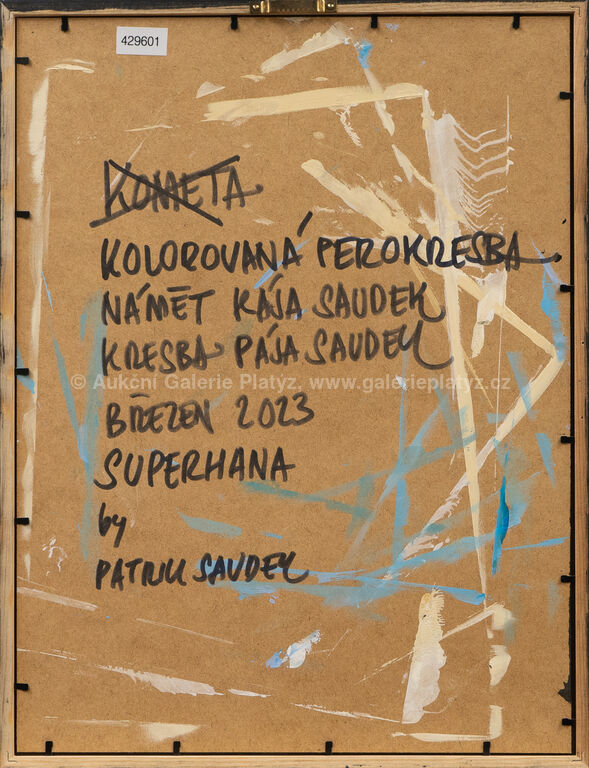 429601
KOMETA
KOLOROVANÁ PEROKRESBA
NÁMĚT KÁJA SAUDEK
KRESBA PÁJA SAUDEK
© Aukční Galerie Platýz, www.galerieplatyz.cz
BŘEZEN 2023
SUPERHANA
by
PATRIK SAUDEK